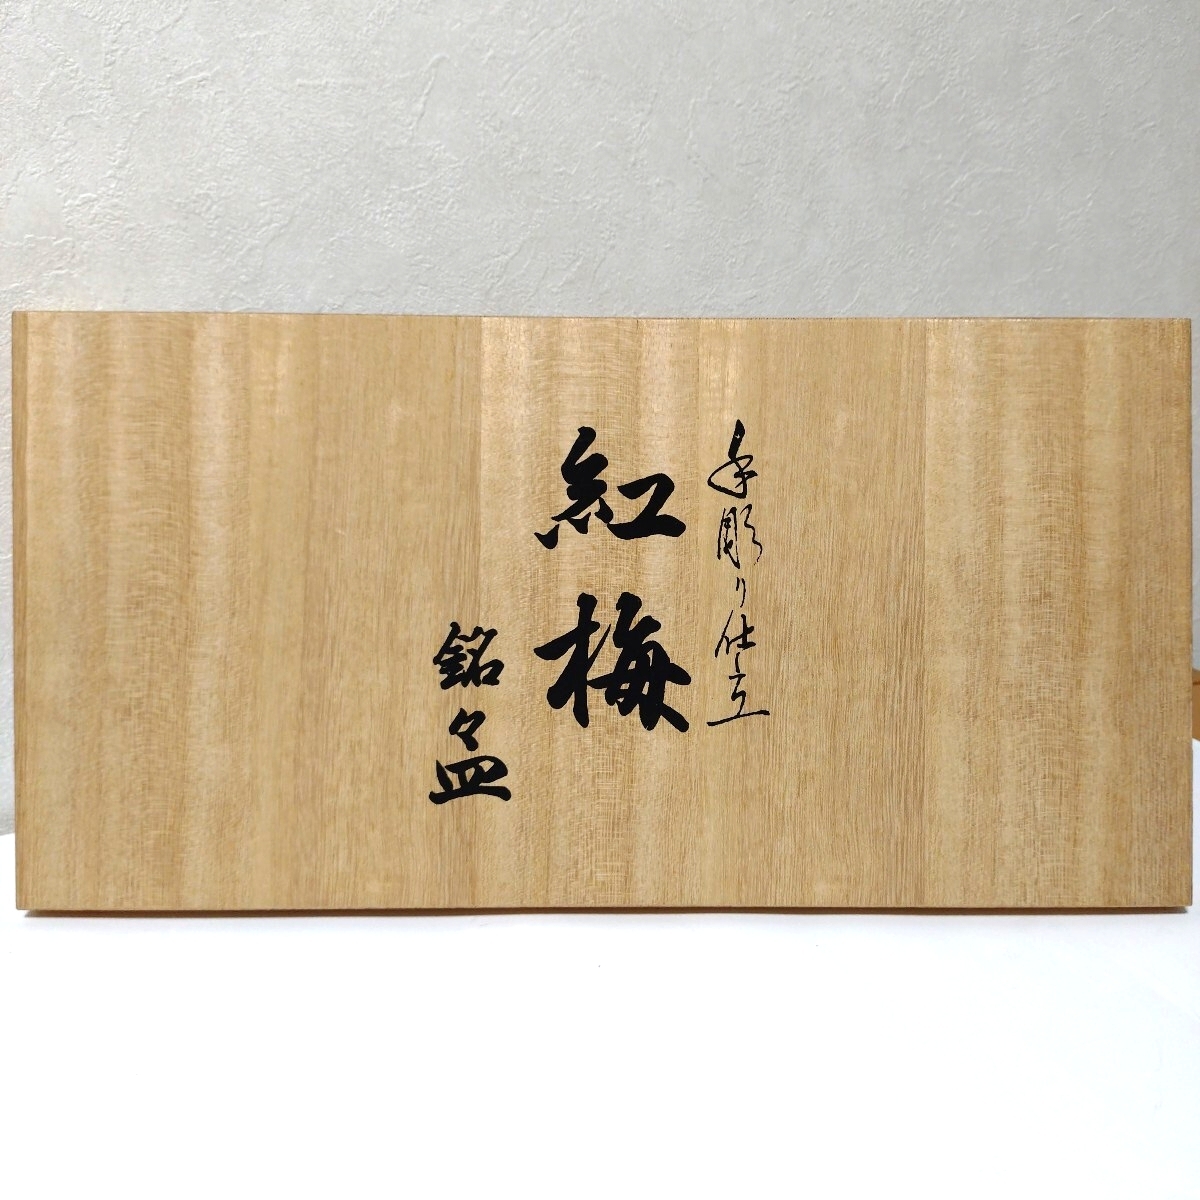 手彫り仕立
紅梅
銘々皿